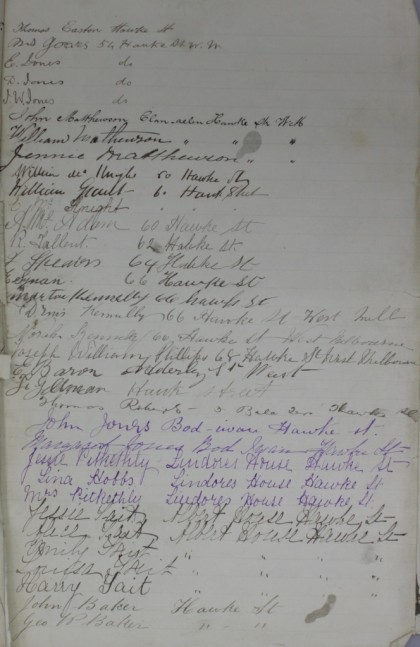 Thomas Easton Hawke St
Mrs Jones 54 Hawke St W. M.
E. Jones do
D. Jones do
J. W. Jones do
John Matthewson Hawke St W M
William Matthewson " " "
Jennie Matthewson " "
William 50 Hawke St
William 60 Hawk Street
Knight
Adam 60 Hawke St
R. Tallent 62 Hawke St
Spearos 64 Hawke St
66 Hawke St
Martin Kennelly 66 Hawke St
Denis Kennelly 66 Hawke St West Melb
Hawke St West Melbourne
Joseph William Phillips 68 Hawke St West Melbourne
Baron Adderley St West
J. Gellman Hawk Street
Thomas Roberts Hawke St
John Jones Bod-iwan Hawke St.
Margaret Jones Bod Iwan Hawke St
Julie Pitkethly Lindores House Hawke St
Lina Hobbs Lindores House Hawke St
Mrs Pitkethly Lindores House Hawke St
Tait Albert House Hawke St
Tait Albert House Hawke St
Emily Tait " " "
Louisa Tait " " "
Harry Tait " " "
John Baker Hawke St
Geo Baker " "